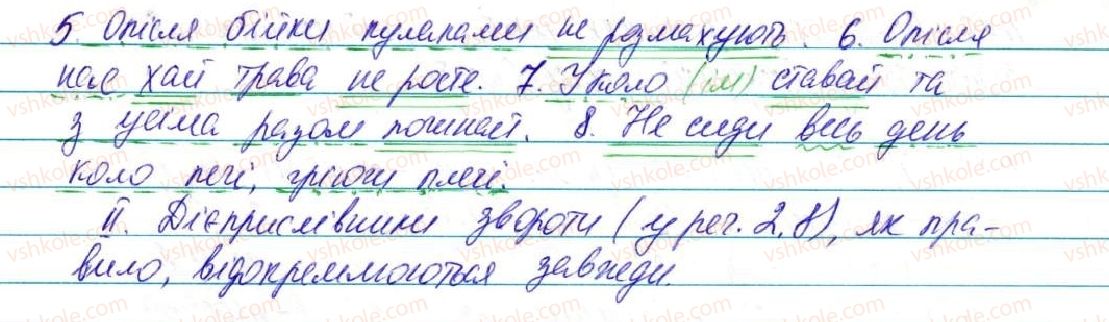 5. Опісля бійки кулаками не розмахують. 6. Опісля
нас хай трава не росте. 7. У коло (ім) ставай та
з усіма разом починай. 8. Не сиди весь день
коло печі, гріючи плечі.
ІІ. Дієприслівникові звороти (у реч. 2, 8), як пра-
вило, відокремлюються завжди.